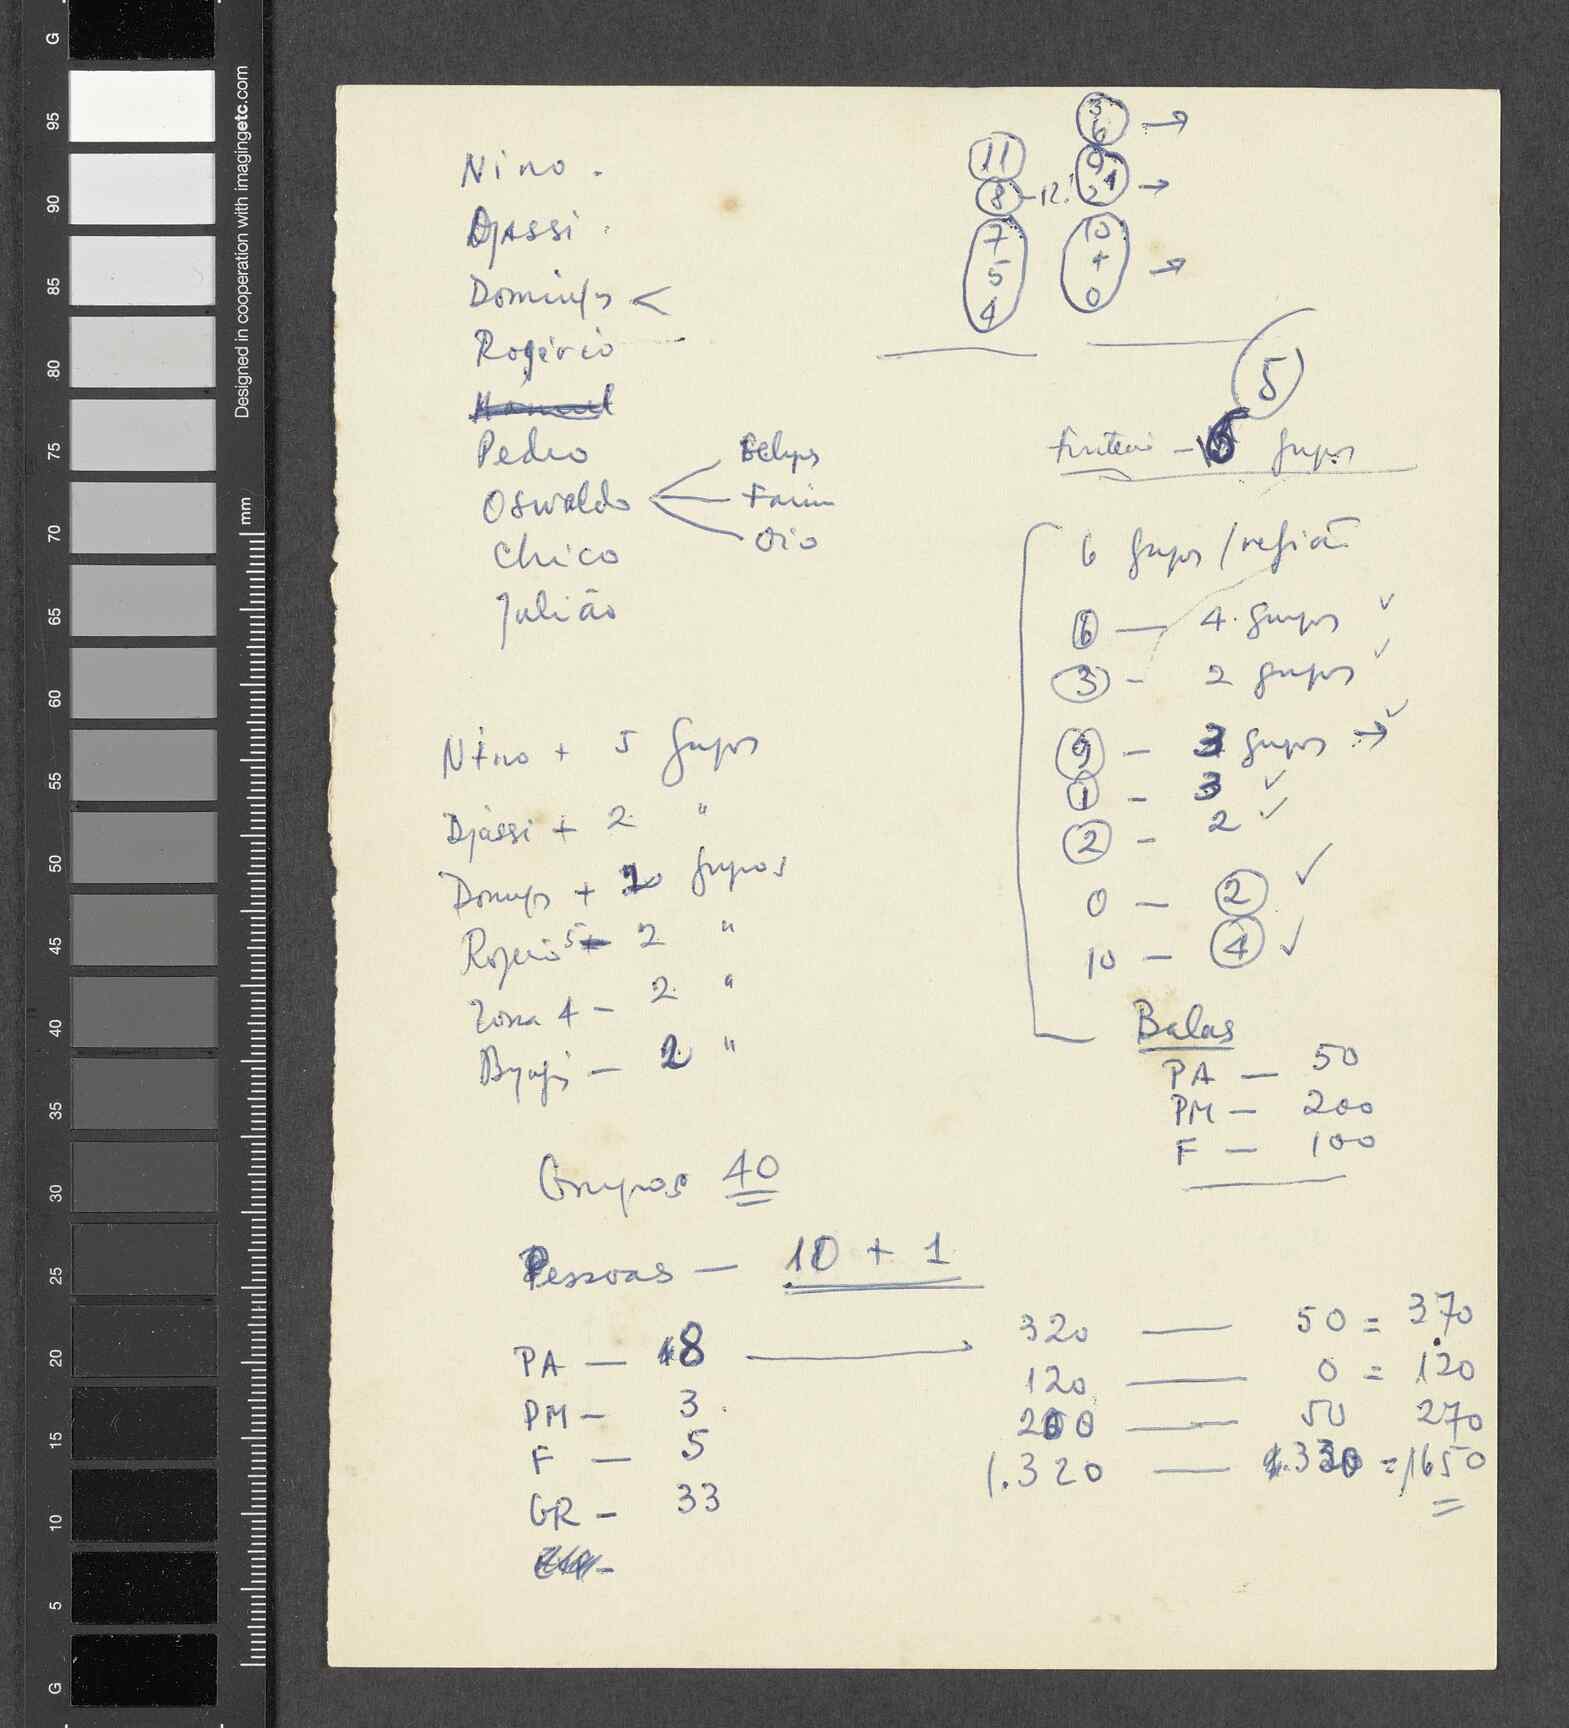 G
95
90
85
80
75
70
65
60
55
50
45
40
35
30
25
20
15
10
5
G
mm
Designed in cooperation with imagingetc.com
Nino.
Djassi.
Domingos <
Rogério
Manuel
Pedro
Oswaldo
Farim
Oio
Chico
Julião
3
6 →
9
1
2 →
10
+
0 →
11
8 - 12!
7
5
4
5
6 grupos
6 grupos / região
6 — 4 grupos ✓
3 - 2 grupos ✓
9 - 3 grupos → ✓
1 - 3 ✓
2 - 2 ✓
0 — 2 ✓
10 — 4 ✓
Nino + 5 grupos
Djassi + 2 "
Domingos + 2 grupos
Rogério 5 - 2 "
Zona 4 - 2 "
— 2 "
Balas
PA — 50
PM — 200
F — 100
Grupos 40
Pessoas — 10 + 1
PA — 8 — 320 — 50 = 370
PM — 3 120 — 0 = 120
F — 5 200 — 50 270
GR — 33 1.320 — 330 = 1650